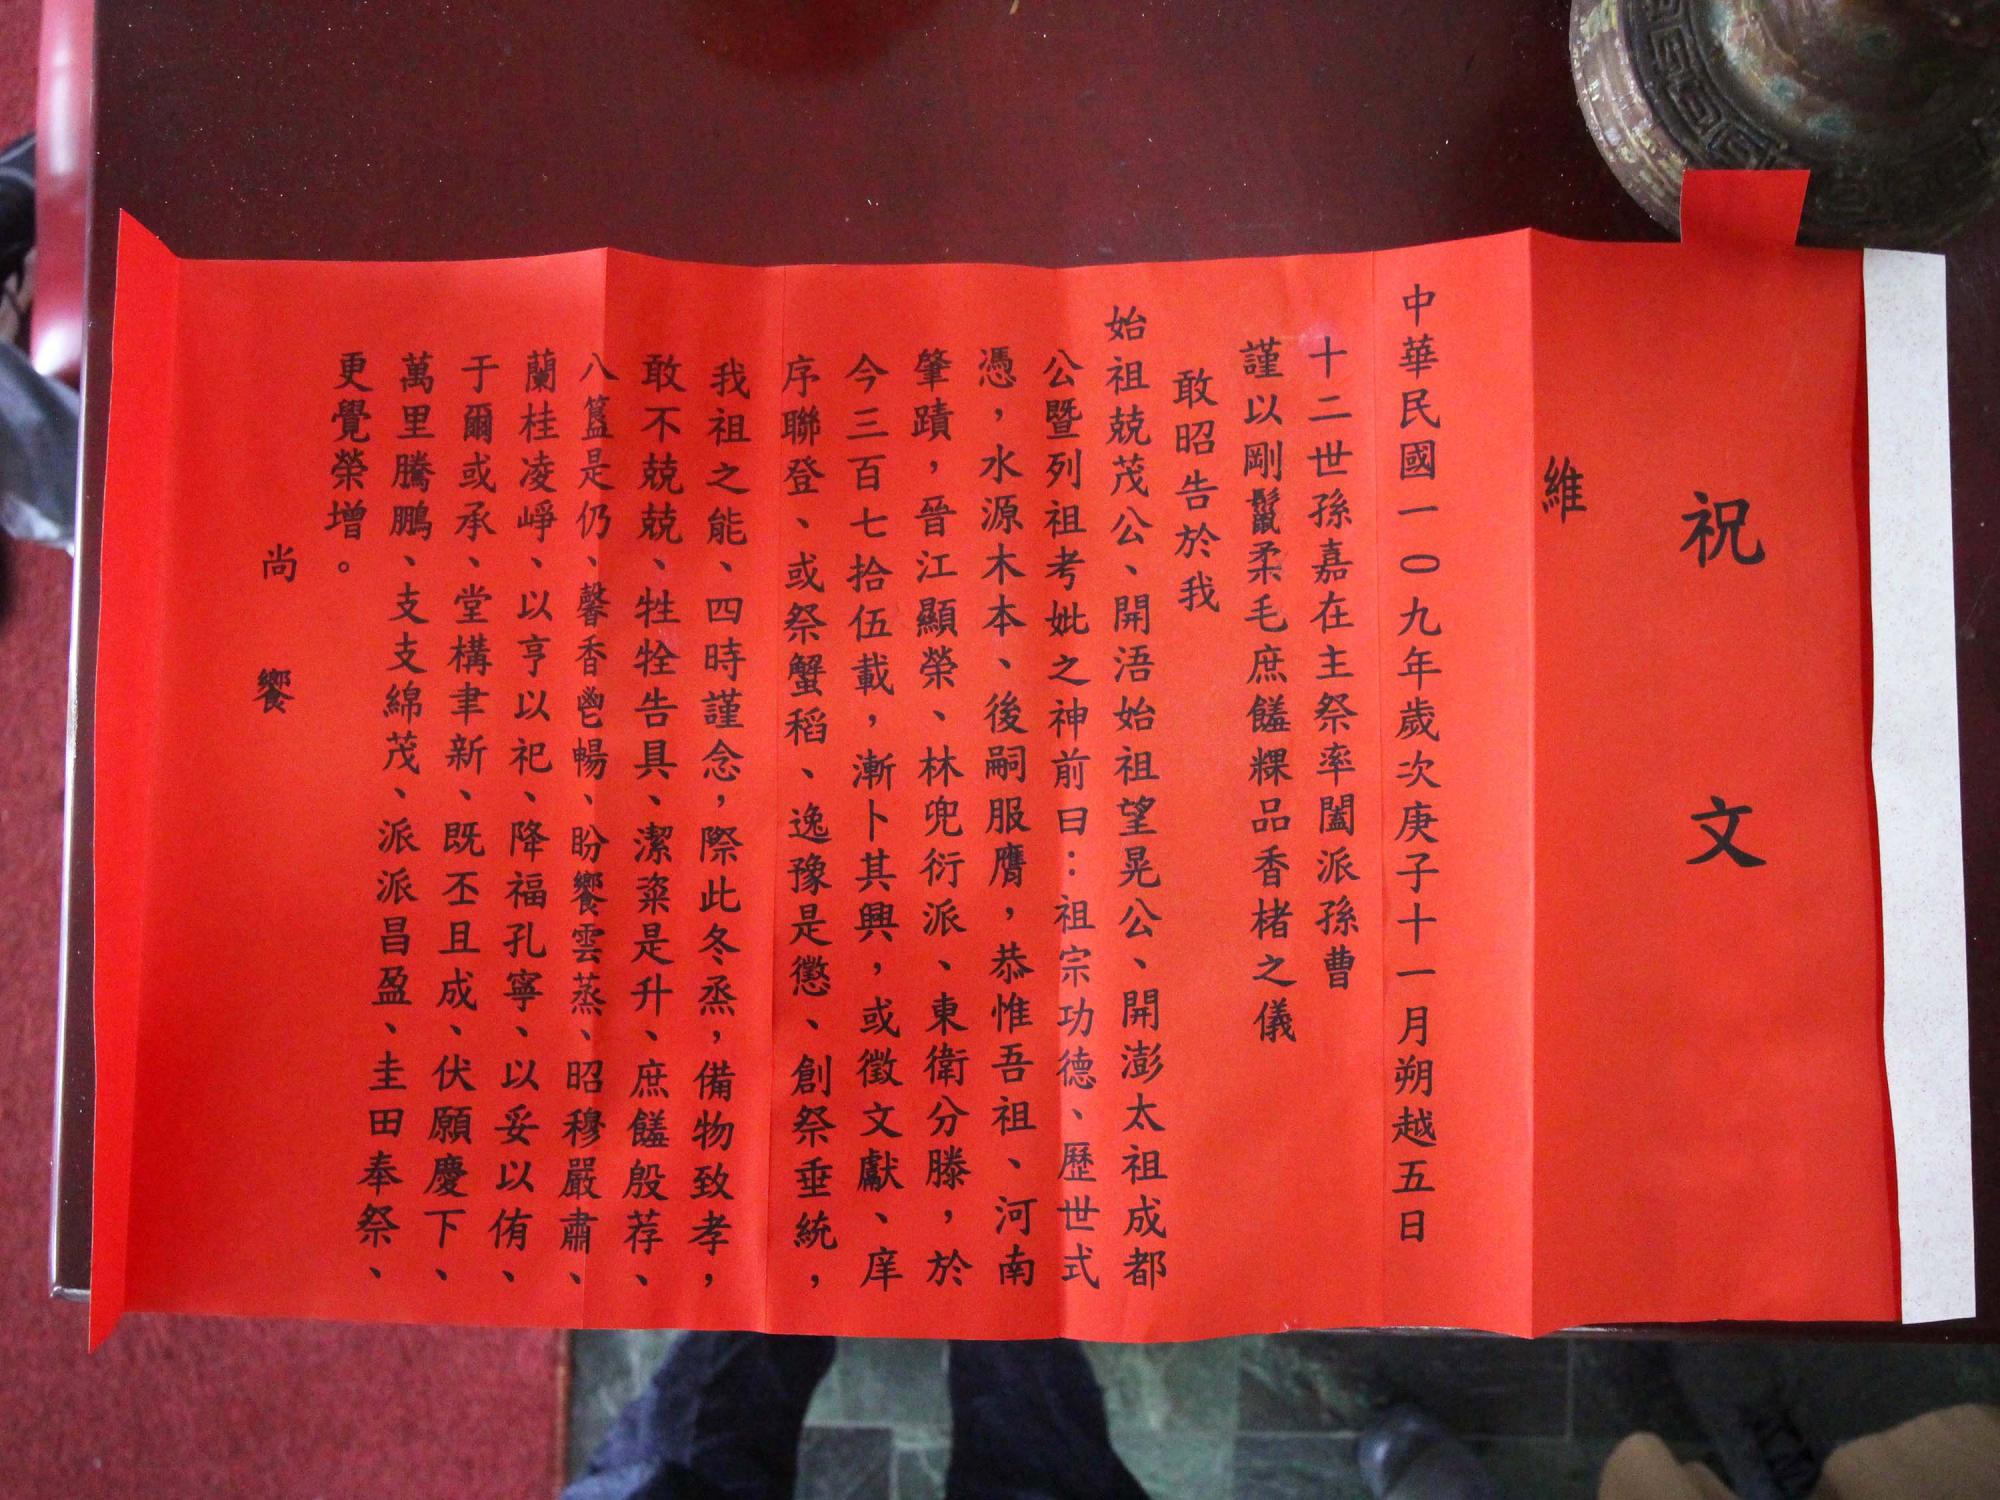 祝文
維
中華民國一〇九年歲次庚子十一月朔越五日
十二世孫嘉在主祭率闔派孫曹
謹以剛鬣柔毛庶饈粿品香楮之儀
敢昭告於我
始祖兢茂公、開浯始祖望晃公、開澎太祖成都
公暨列祖考妣之神前曰：祖宗功德、歷世式
憑，水源木本、後嗣服膺，恭惟吾祖、河南
肇蹟，晉江顯榮、林兜衍派、東衛分滕，於
今三百七拾伍載，漸卜其興，或徵文獻、庠
序聯登、或祭蟹稻、逸豫是懲、創祭垂統，
我祖之能、四時謹念，際此冬烝，備物致孝，
敢不兢兢、牲牷告具、潔粢是升、庶饈殷荐、
八簋是仍、馨香鬯暢、盼饗雲蒸、昭穆嚴肅、
蘭桂凌崢、以亨以祀、降福孔寧、以妥以侑、
于爾或承、堂構聿新、既丕且成、伏願慶下、
萬里騰鵬、支支綿茂、派派昌盈、圭田奉祭、
更覺榮增。
尚饗